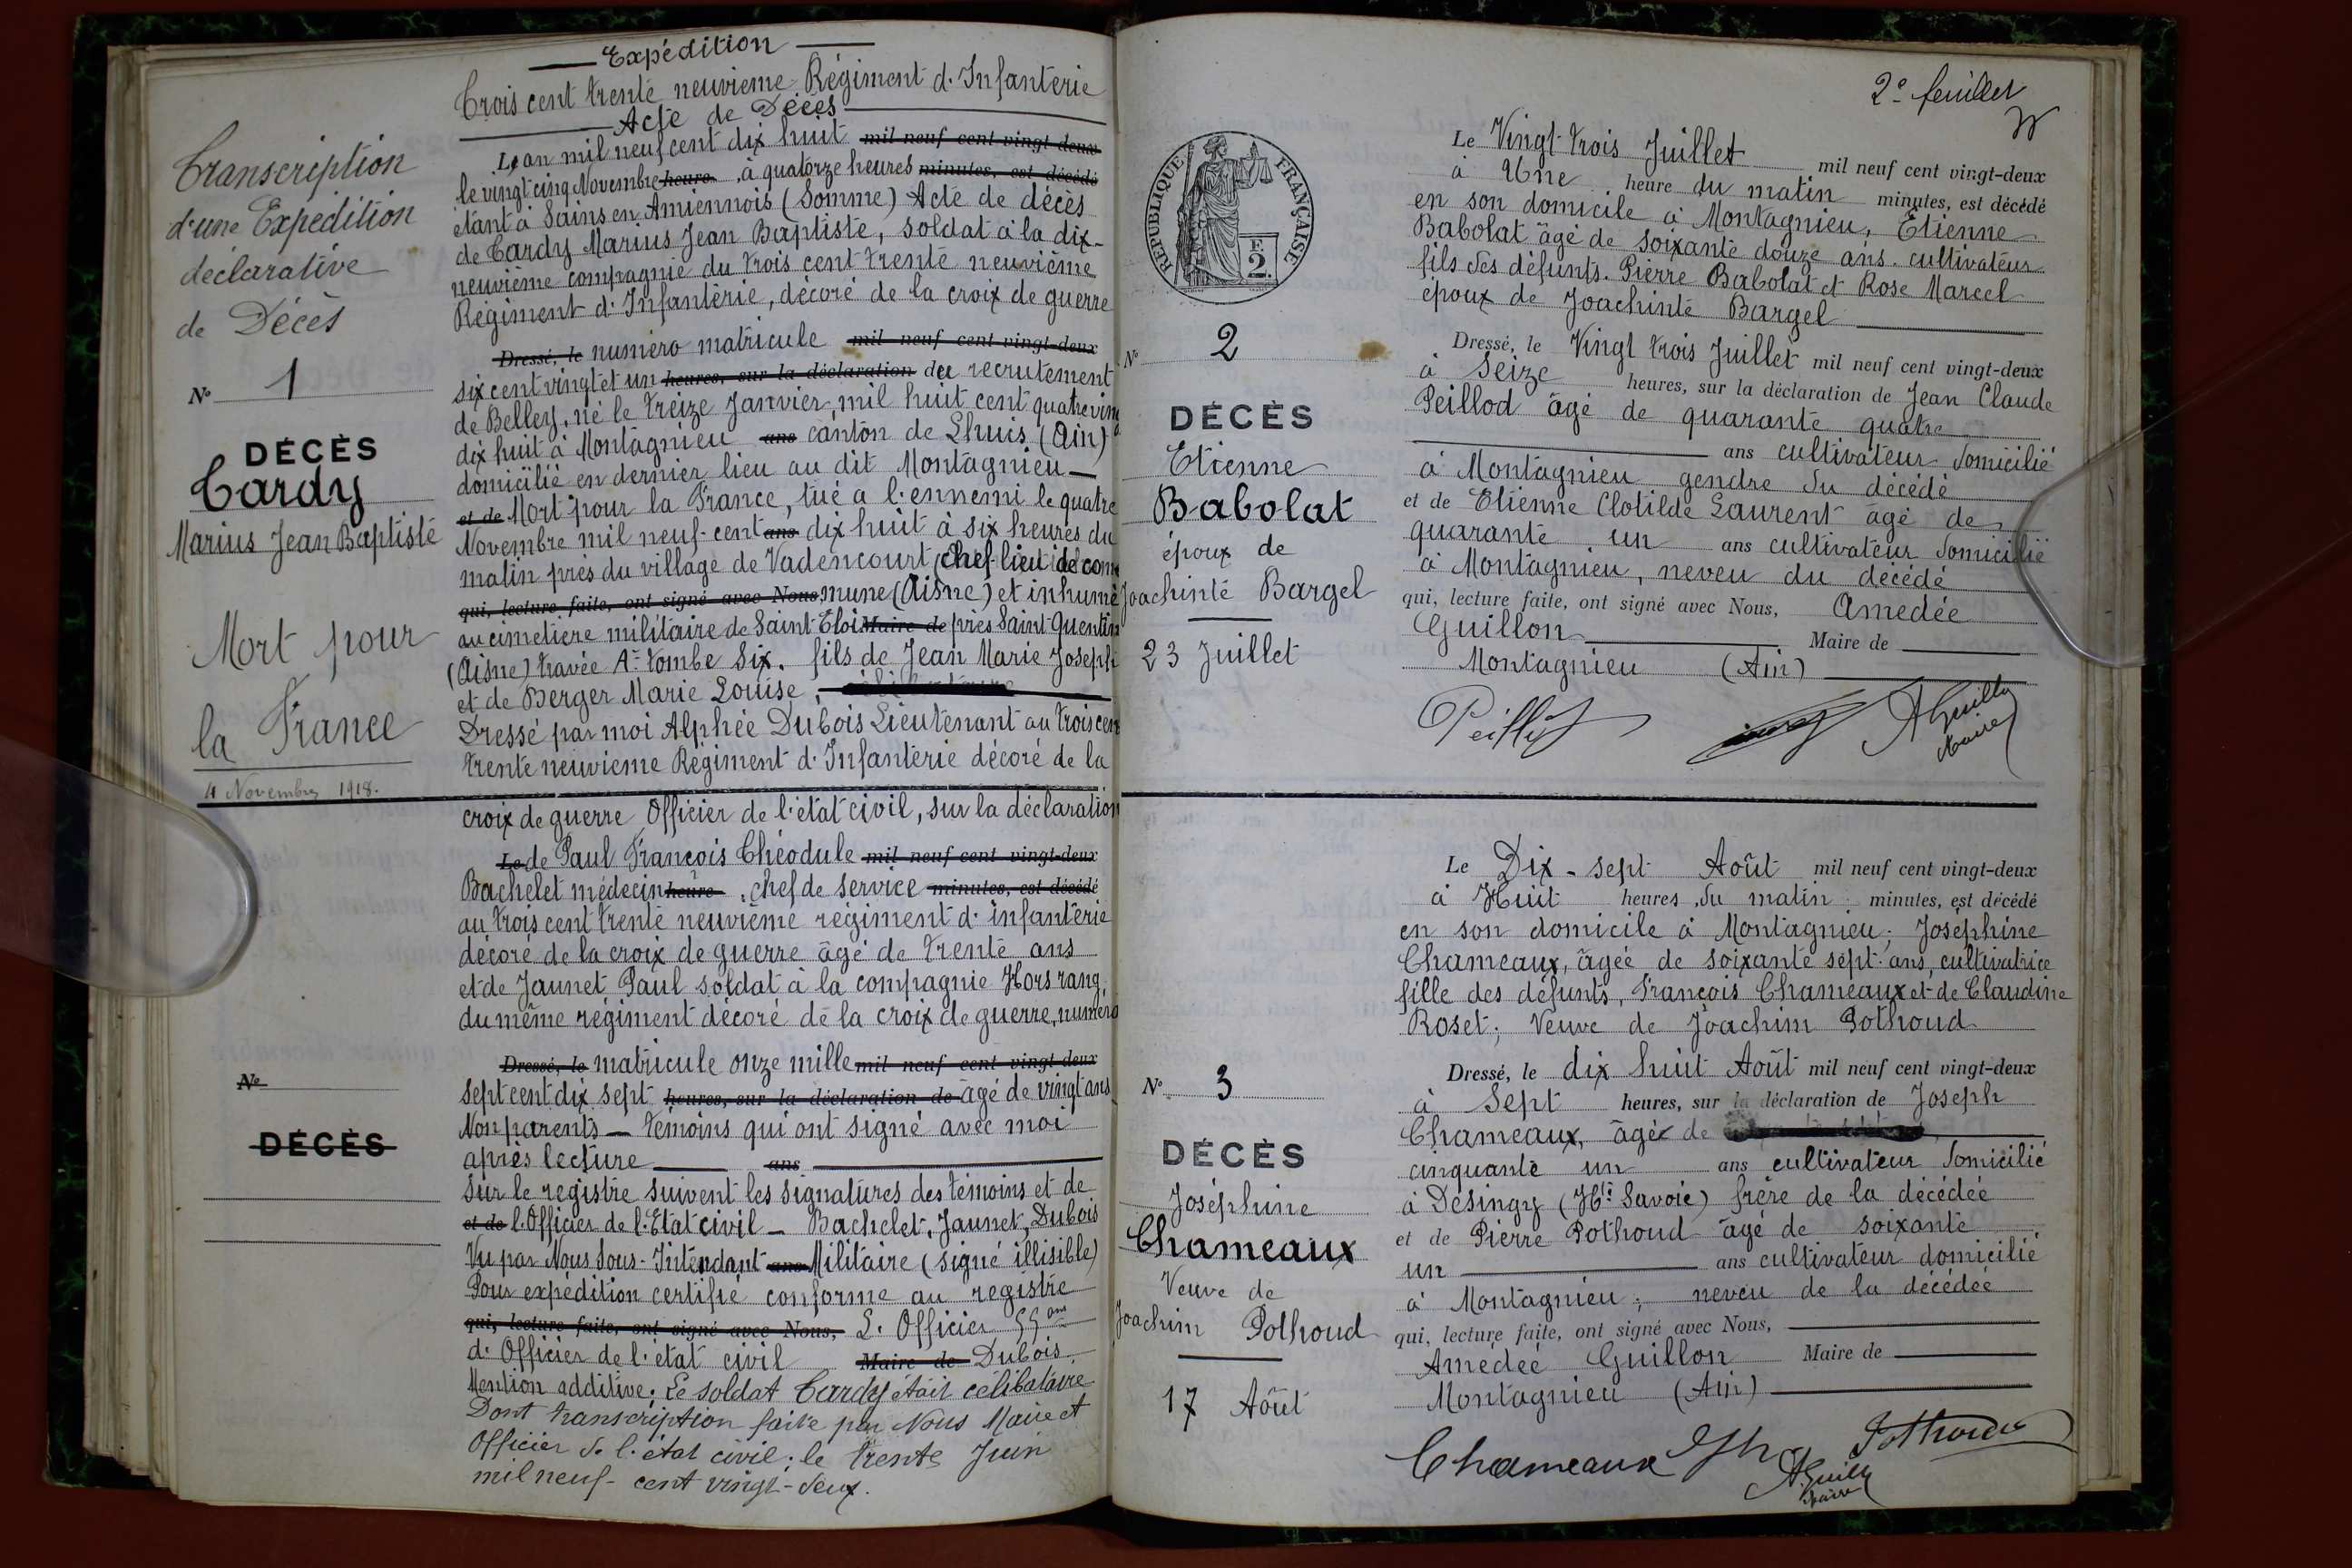 Expédition
Trois cent trente neuvième Régiment d'Infanterie
Acte de Décès
Transcription
d'une Expédition
déclarative
de Décès
N° 1
DÉCÈS
Tardy
Marius Jean Baptiste
Mort pour
la France
4 Novembre 1918.
L'an mil neuf cent dix huit mil neuf cent vingt-deux
le vingt cinq Novembre heure, à quatorze heures minutes, est décédé
étant à Sains en Amiennois (Somme) Acte de décès
de Tardy Marius Jean Baptiste, soldat à la dix-
neuvième compagnie du trois cent trente neuvième
Régiment d'Infanterie, décoré de la croix de guerre
Dressé, le numéro matricule mil neuf cent vingt-deux
six cent vingt et un heures, sur la déclaration du recrutement
de Belley, né le treize Janvier mil huit cent quatre ving
dix huit à Montagnieu ans canton de Lhuis (Ain)
domicilié en dernier lieu au dit Montagnieu
et de Mort pour la France, tué a l'ennemi le quatre
Novembre mil neuf-cent ans dix huit à six heures du
matin près du village de Vadencourt (chef-lieu de com
qui, lecture faite, ont signé avec Nous mune (Aisne) et inhumé
au cimetière militaire de Saint Eloi Maire de près Saint-Quentin
(Aisne) travée A- tombe Six, fils de Jean Marie Joseph
et de Berger Marie Louise,
Dressé par moi Alphée Dubois Lieutenant au trois cent
trente neuvième Régiment d'Infanterie décoré de la
croix de guerre Officier de l'état civil, sur la déclaration
Le de Paul François Théodule mil neuf cent vingt-deux
Bachelet médecin heure, chef de service minutes, est décédé
au trois cent trente neuvième régiment d'infanterie
décoré de la croix de guerre âgé de trente ans
et de Jaunet Paul soldat à la compagnie Hors rang,
du même régiment décoré de la croix de guerre, numéro
Dressé, le matricule onze mille mil neuf cent vingt-deux
sept cent dix sept heures, sur la déclaration de âgé de vingt ans
Non parents — témoins qui ont signé avec moi
après lecture ans
Sur le registre suivent les signatures des témoins et de
et de l'Officier de l'Etat civil — Bachelet, Jaunet, Dubois
Vu par Nous Sous-Intendant ans Militaire (signé illisible)
Pour expédition certifié conforme au registre
qui, lecture faite, ont signé avec Nous, L'Officier
d'Officier de l'état civil Maire de Dubois.
Mention additive: Le soldat Tardy était célibataire
Dont transcription faite par Nous Maire et
Officier de l'état civil, le trente Juin
mil neuf-cent vingt-deux.
N°
DÉCÈS
2e feuillet
RÉPUBLIQUE FRANÇAISE
F.
2.
N° 2
DÉCÈS
Etienne
Babolat
époux de
Joachinte Bargel
23 Juillet
Le Vingt-trois Juillet mil neuf cent vingt-deux
à Une heure du matin minutes, est décédé
en son domicile à Montagnieu, Etienne
Babolat âgé de soixante douze ans. cultivateur
fils des défunts. Pierre Babolat et Rose Marcel
époux de Joachinte Bargel
Dressé, le Vingt trois Juillet mil neuf cent vingt-deux
à Seize heures, sur la déclaration de Jean Claude
Peillod âgé de quarante quatre
ans cultivateur domicilié
à Montagnieu gendre du décédé
et de Etienne Clotilde Laurent âgé de
quarante un ans cultivateur domicilié
à Montagnieu, neveu du décédé
qui, lecture faite, ont signé avec Nous, Amedée
Guillon Maire de
Montagnieu (Ain)
AGuillon
Maire
N° 3
DÉCÈS
Joséphine
Chameaux
Veuve de
Joachim Pothoud
17 Août
Le Dix-sept Août mil neuf cent vingt-deux
à Huit heures du matin minutes, est décédé
en son domicile à Montagnieu; Joséphine
Chameaux, âgée de soixante sept ans, cultivatrice
fille des défunts, François Chameaux et de Claudine
Roset; Veuve de Joachim Pothoud
Dressé, le dix huit Août mil neuf cent vingt-deux
à Sept heures, sur la déclaration de Joseph
Chameaux, âgé de
cinquante un ans cultivateur domicilié
à Desingy (Hte Savoie) frère de la décédée
et de Pierre Pothoud âgé de soixante
un ans cultivateur domicilié
à Montagnieu; neveu de la décédée
qui, lecture faite, ont signé avec Nous,
Amédée Guillon Maire de
Montagnieu (Ain)
Chameaux Jph Pothoud
AGuillon
Maire